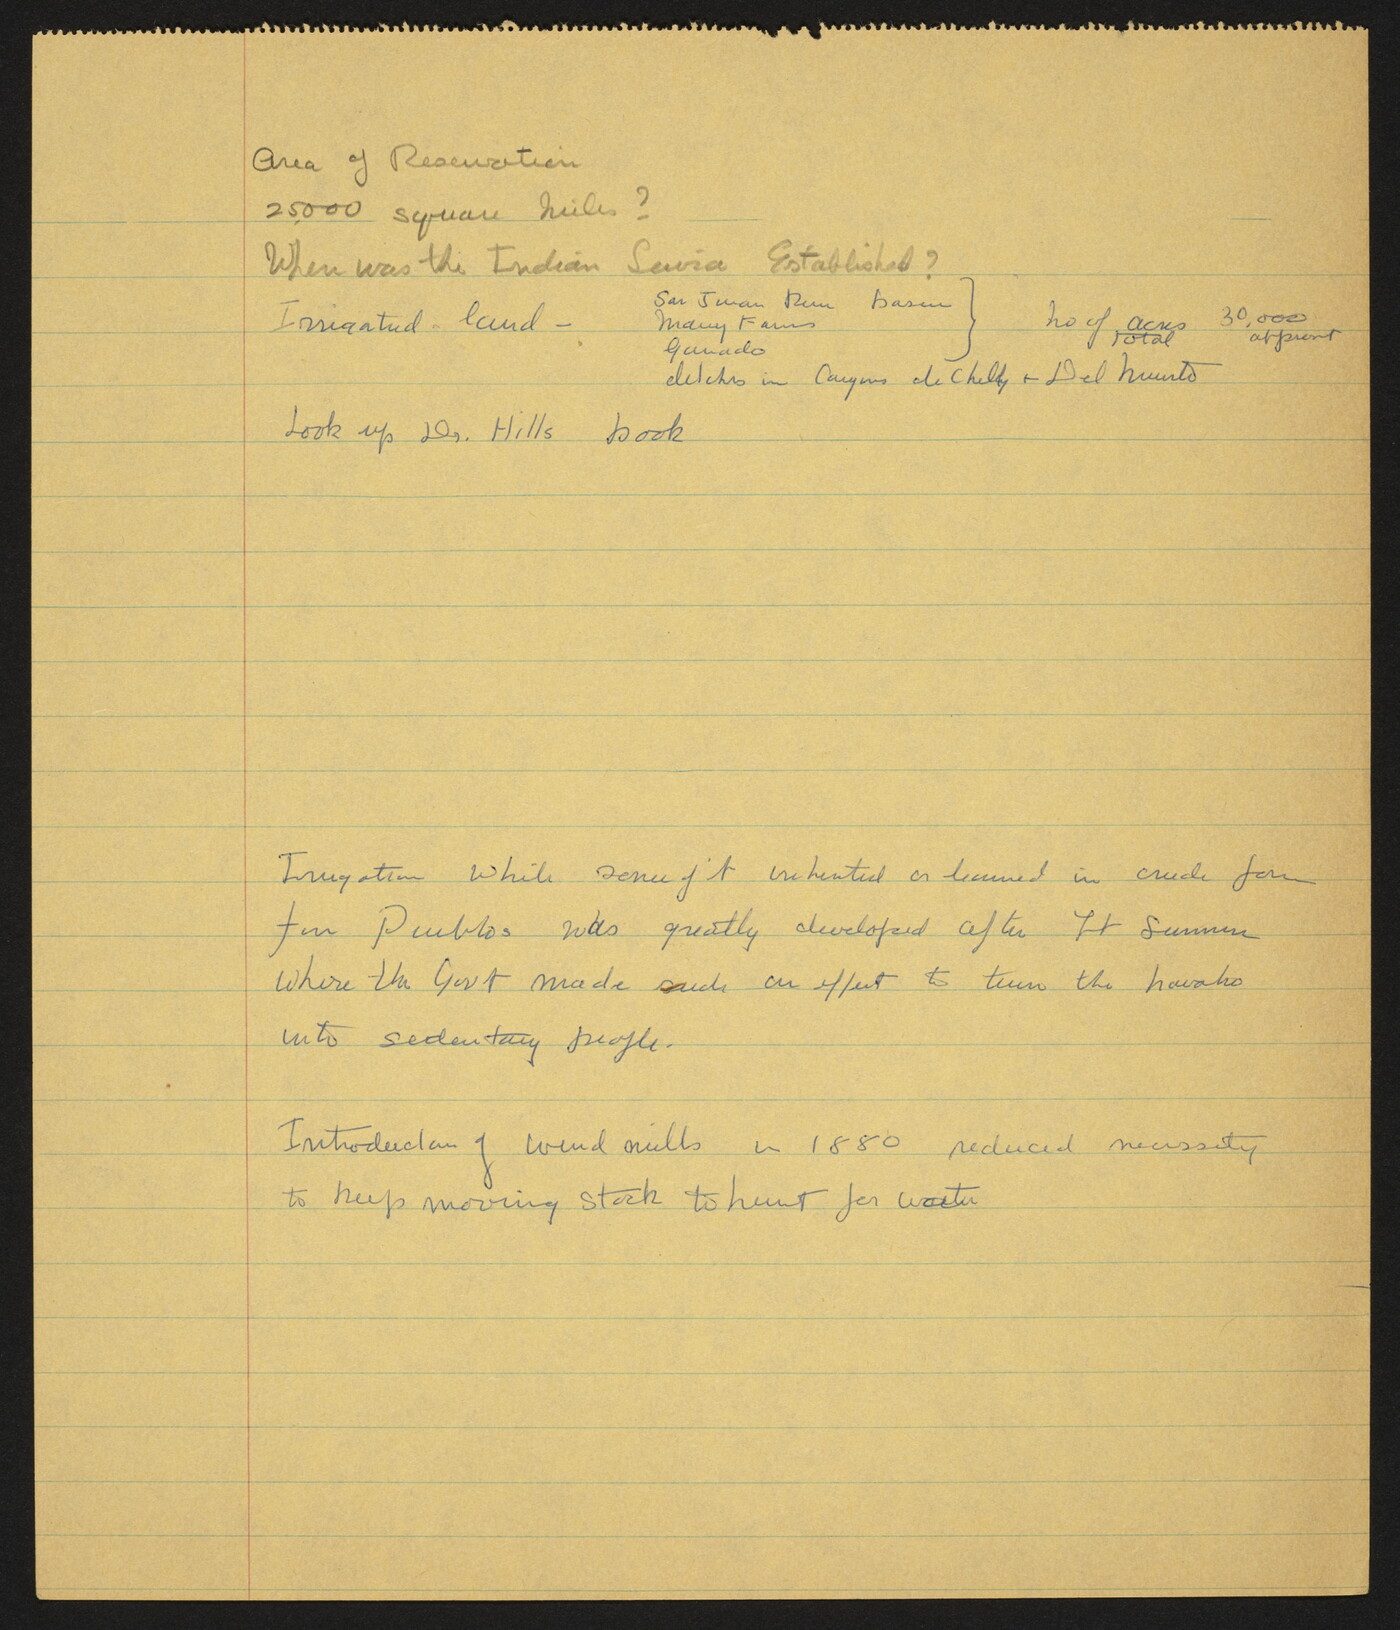 Area of Reservation
25,000 square miles?
When was the Indian Service Established?
Irrigated land - San Juan River basin
Many Farms
Ganado
No of acres 30,000
total at present
ditches in Canyons de Chelly + Del Muerto
Look up Dr. Hills book
Irrigation while some of it inherited or learned in crude form
from Pueblos was greatly developed after Ft Sumner
where the Govt made such an effort to turn the Navaho
into sedentary people.
Introduction of wind mills in 1880 reduced necessity
to keep moving stock to hunt for water